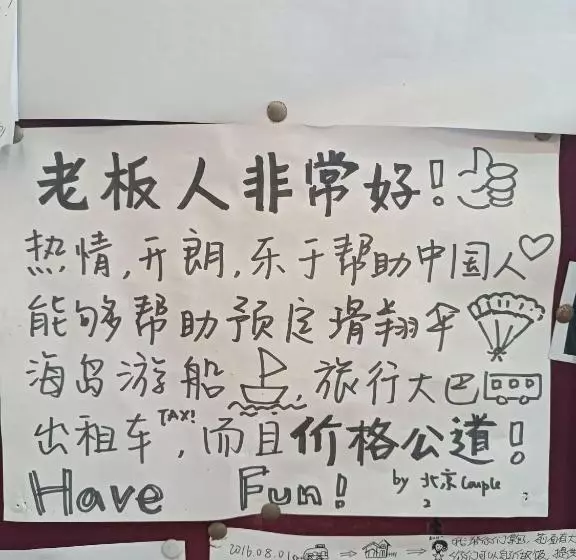 老板人非常好!
热情,开朗,乐于帮助中国人
能够帮助预定滑翔伞
海岛游船,旅行大巴
出租车TAXI,而且价格公道!
Have Fun!
by 北京Couple
2016.08.01